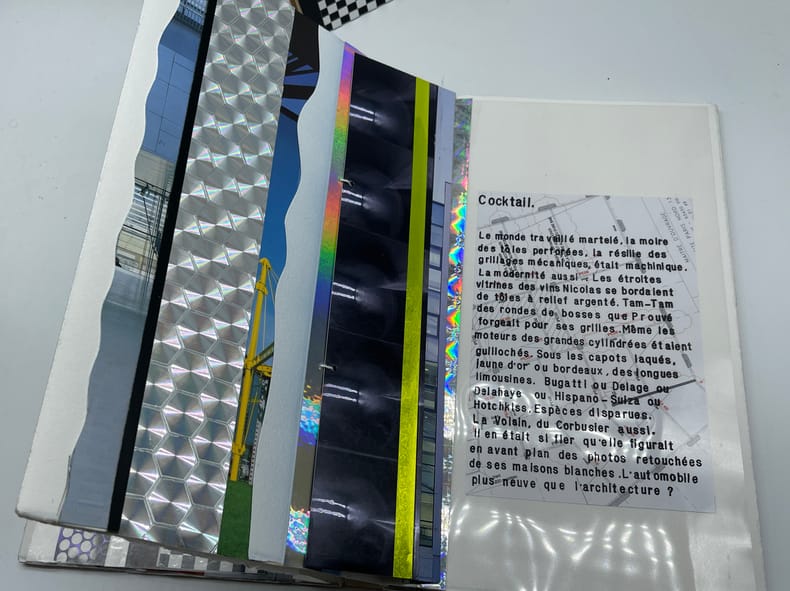 Cocktail.
Le monde travaillé martelé, la moire
des tôles perforées, la résille des
grillages mécaniques, était machinique.
La modernité aussi. Les étroites
vitrines des vins Nicolas se bordaient
de tôles à relief argenté. Tam-Tam
des rondes de bosses que Prouvé
forgeait pour ses grilles. Même les
moteurs des grandes cylindrées étaient
guillochés. Sous les capots laqués,
jaune d'or ou bordeaux, des longues
limousines. Bugatti ou Delage ou
Delahaye ou Hispano-Suiza ou
Hotchkiss. Espèces disparues.
La Voisin, du Corbusier aussi.
Il en était si fier qu'elle figurait
en avant plan des photos retouchées
de ses maisons blanches. L'automobile
plus neuve que l'architecture ?